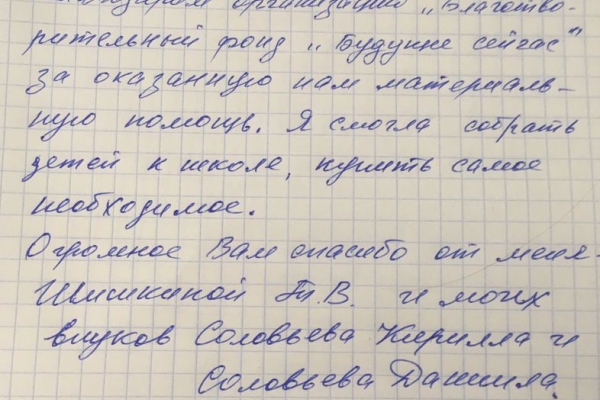 организацию „Благотво-
рительный фонд „Будущее сейчас"
за оказанную нам материаль-
ную помощь. Я смогла собрать
детей к школе, купить самое
необходимое.
Огромное Вам спасибо от меня
Шишкиной Т.В. и моих
внуков Соловьева Кирилла и
Соловьева Даниила.